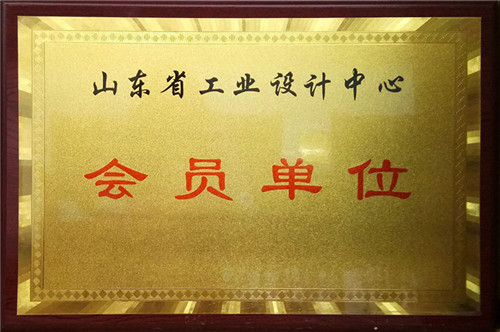 山东省工业设计中心
会员单位